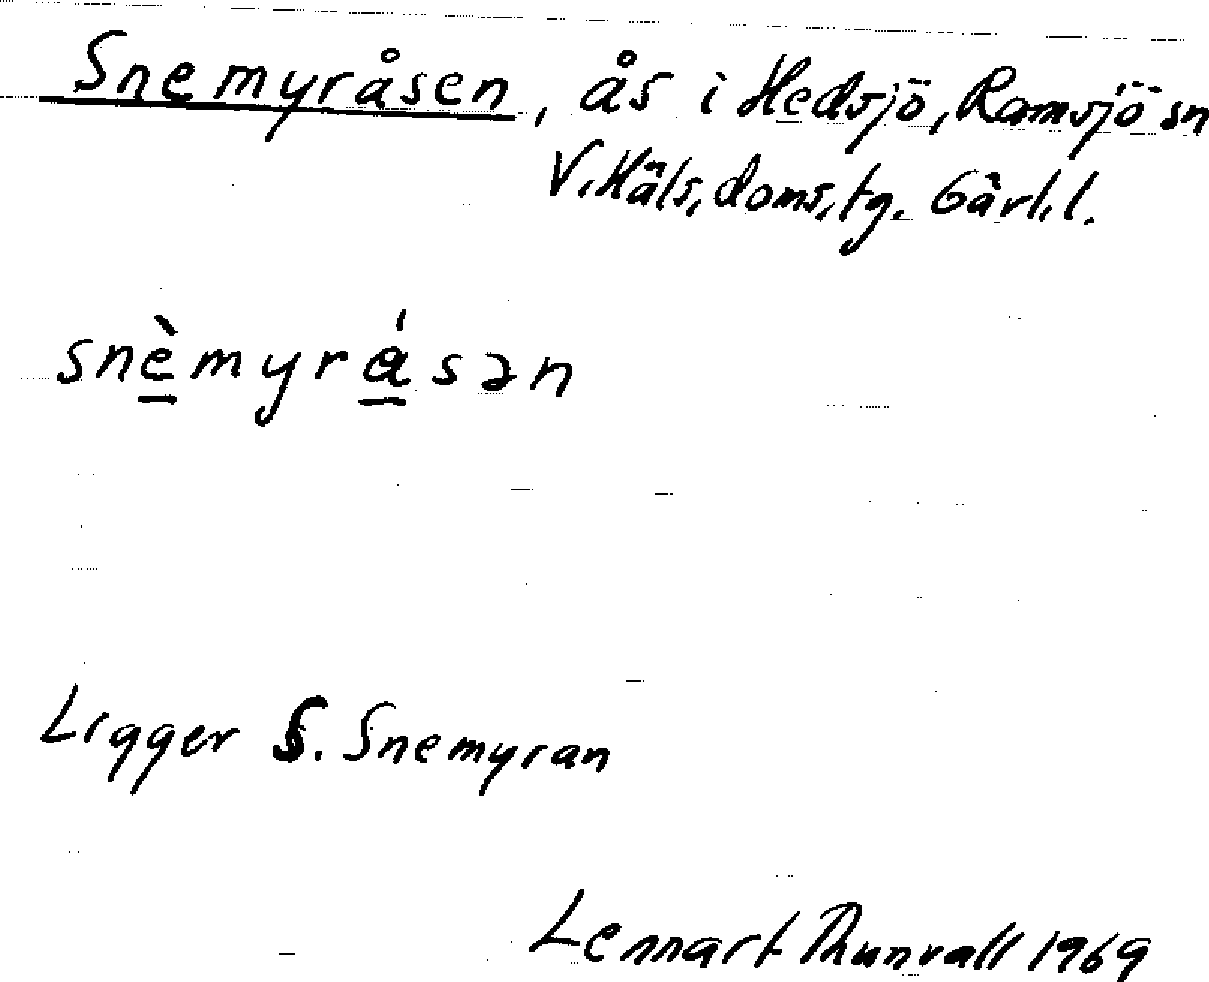 Snemyråsen, ås i Hedsjö, Ramsjö sn
V. Häls. doms.tg. Gävl.l.
snèmyrásən
Ligger S. Snemyran
Lennart Thunvall 1969